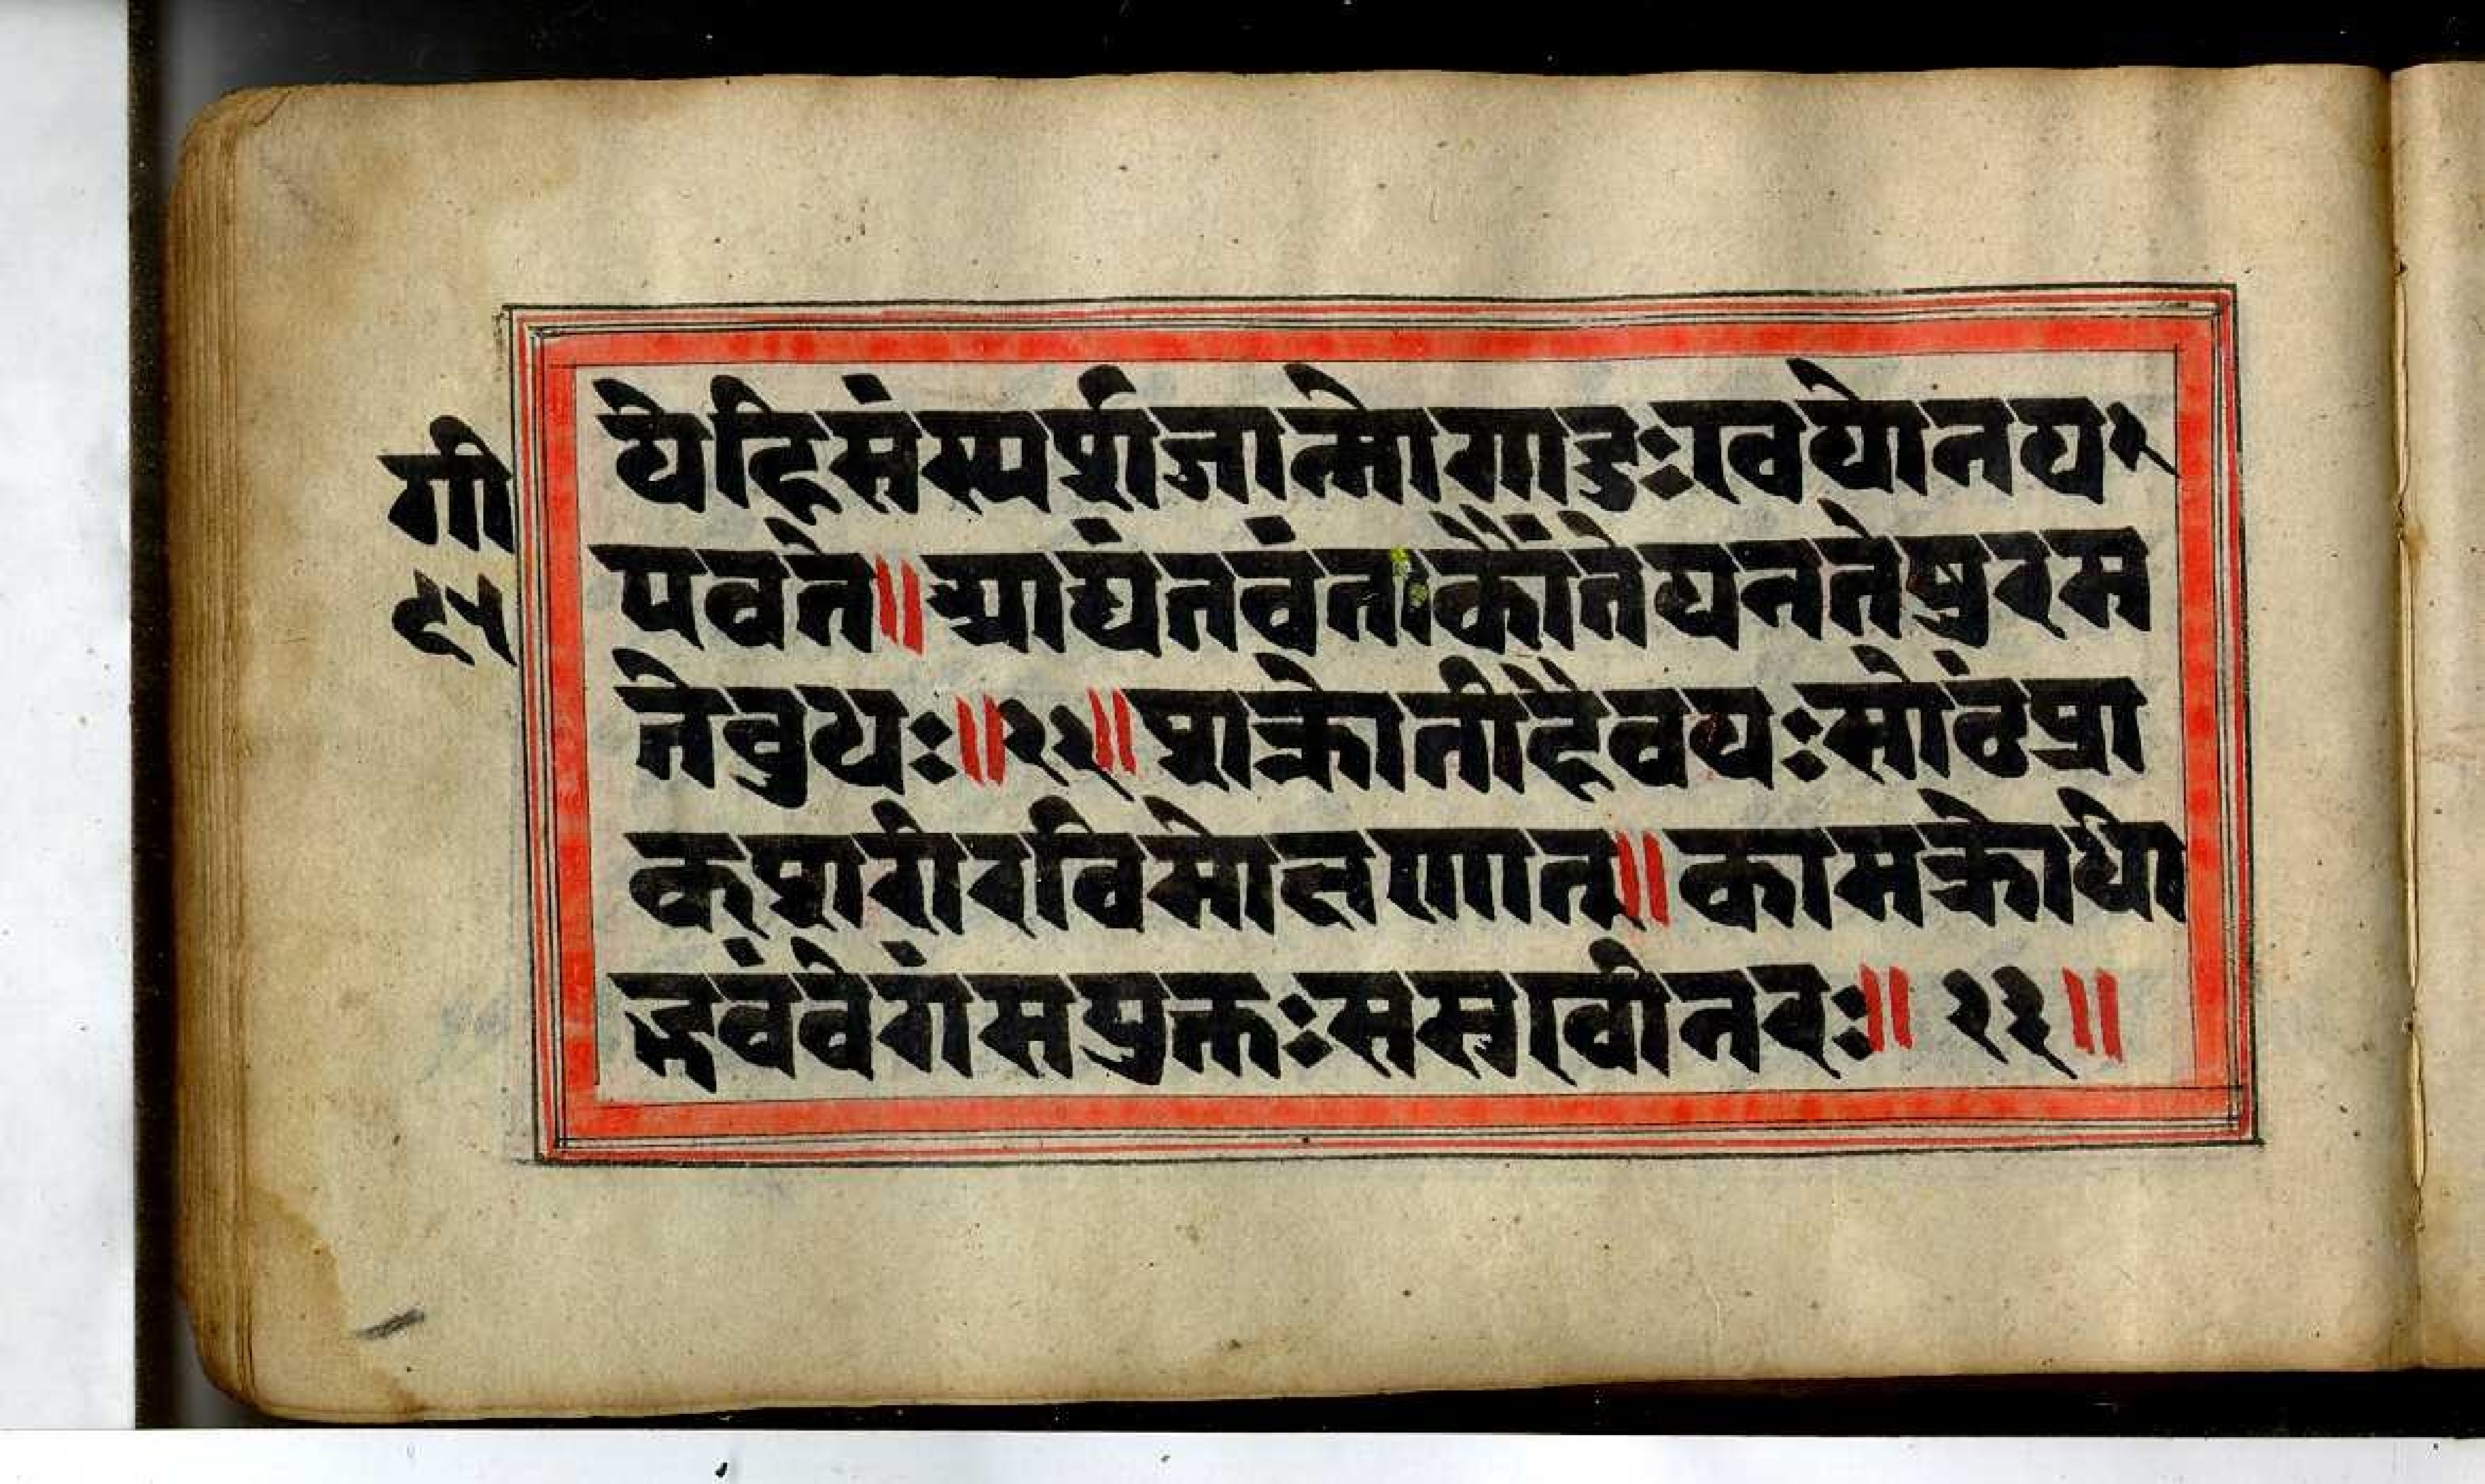 गी
९५
येहिसंस्पर्शजाभोगाडुःखयोनयए
पवते॥ आद्यंतवंतःकौंतेयनतेषुरम
तेबुधः॥२२॥शक्नोतीहैवयःसोढंप्रा
क्शरीरविमोक्षणात्॥कामक्रोधो
द्भवंवेगंसयुक्तःससुखीनरः॥२३॥